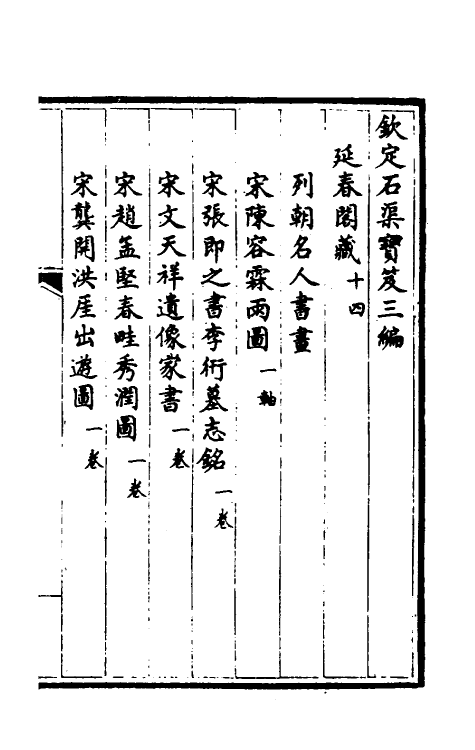 欽定石渠寶笈三編
延春閣藏十四
列朝名人書畫
宋陳容霖雨圖一軸
宋張即之書李衎墓志銘一卷
宋文天祥遺像家書一卷
宋趙孟堅春畦秀潤圖一卷
宋龔開洪厓出遊圖一卷